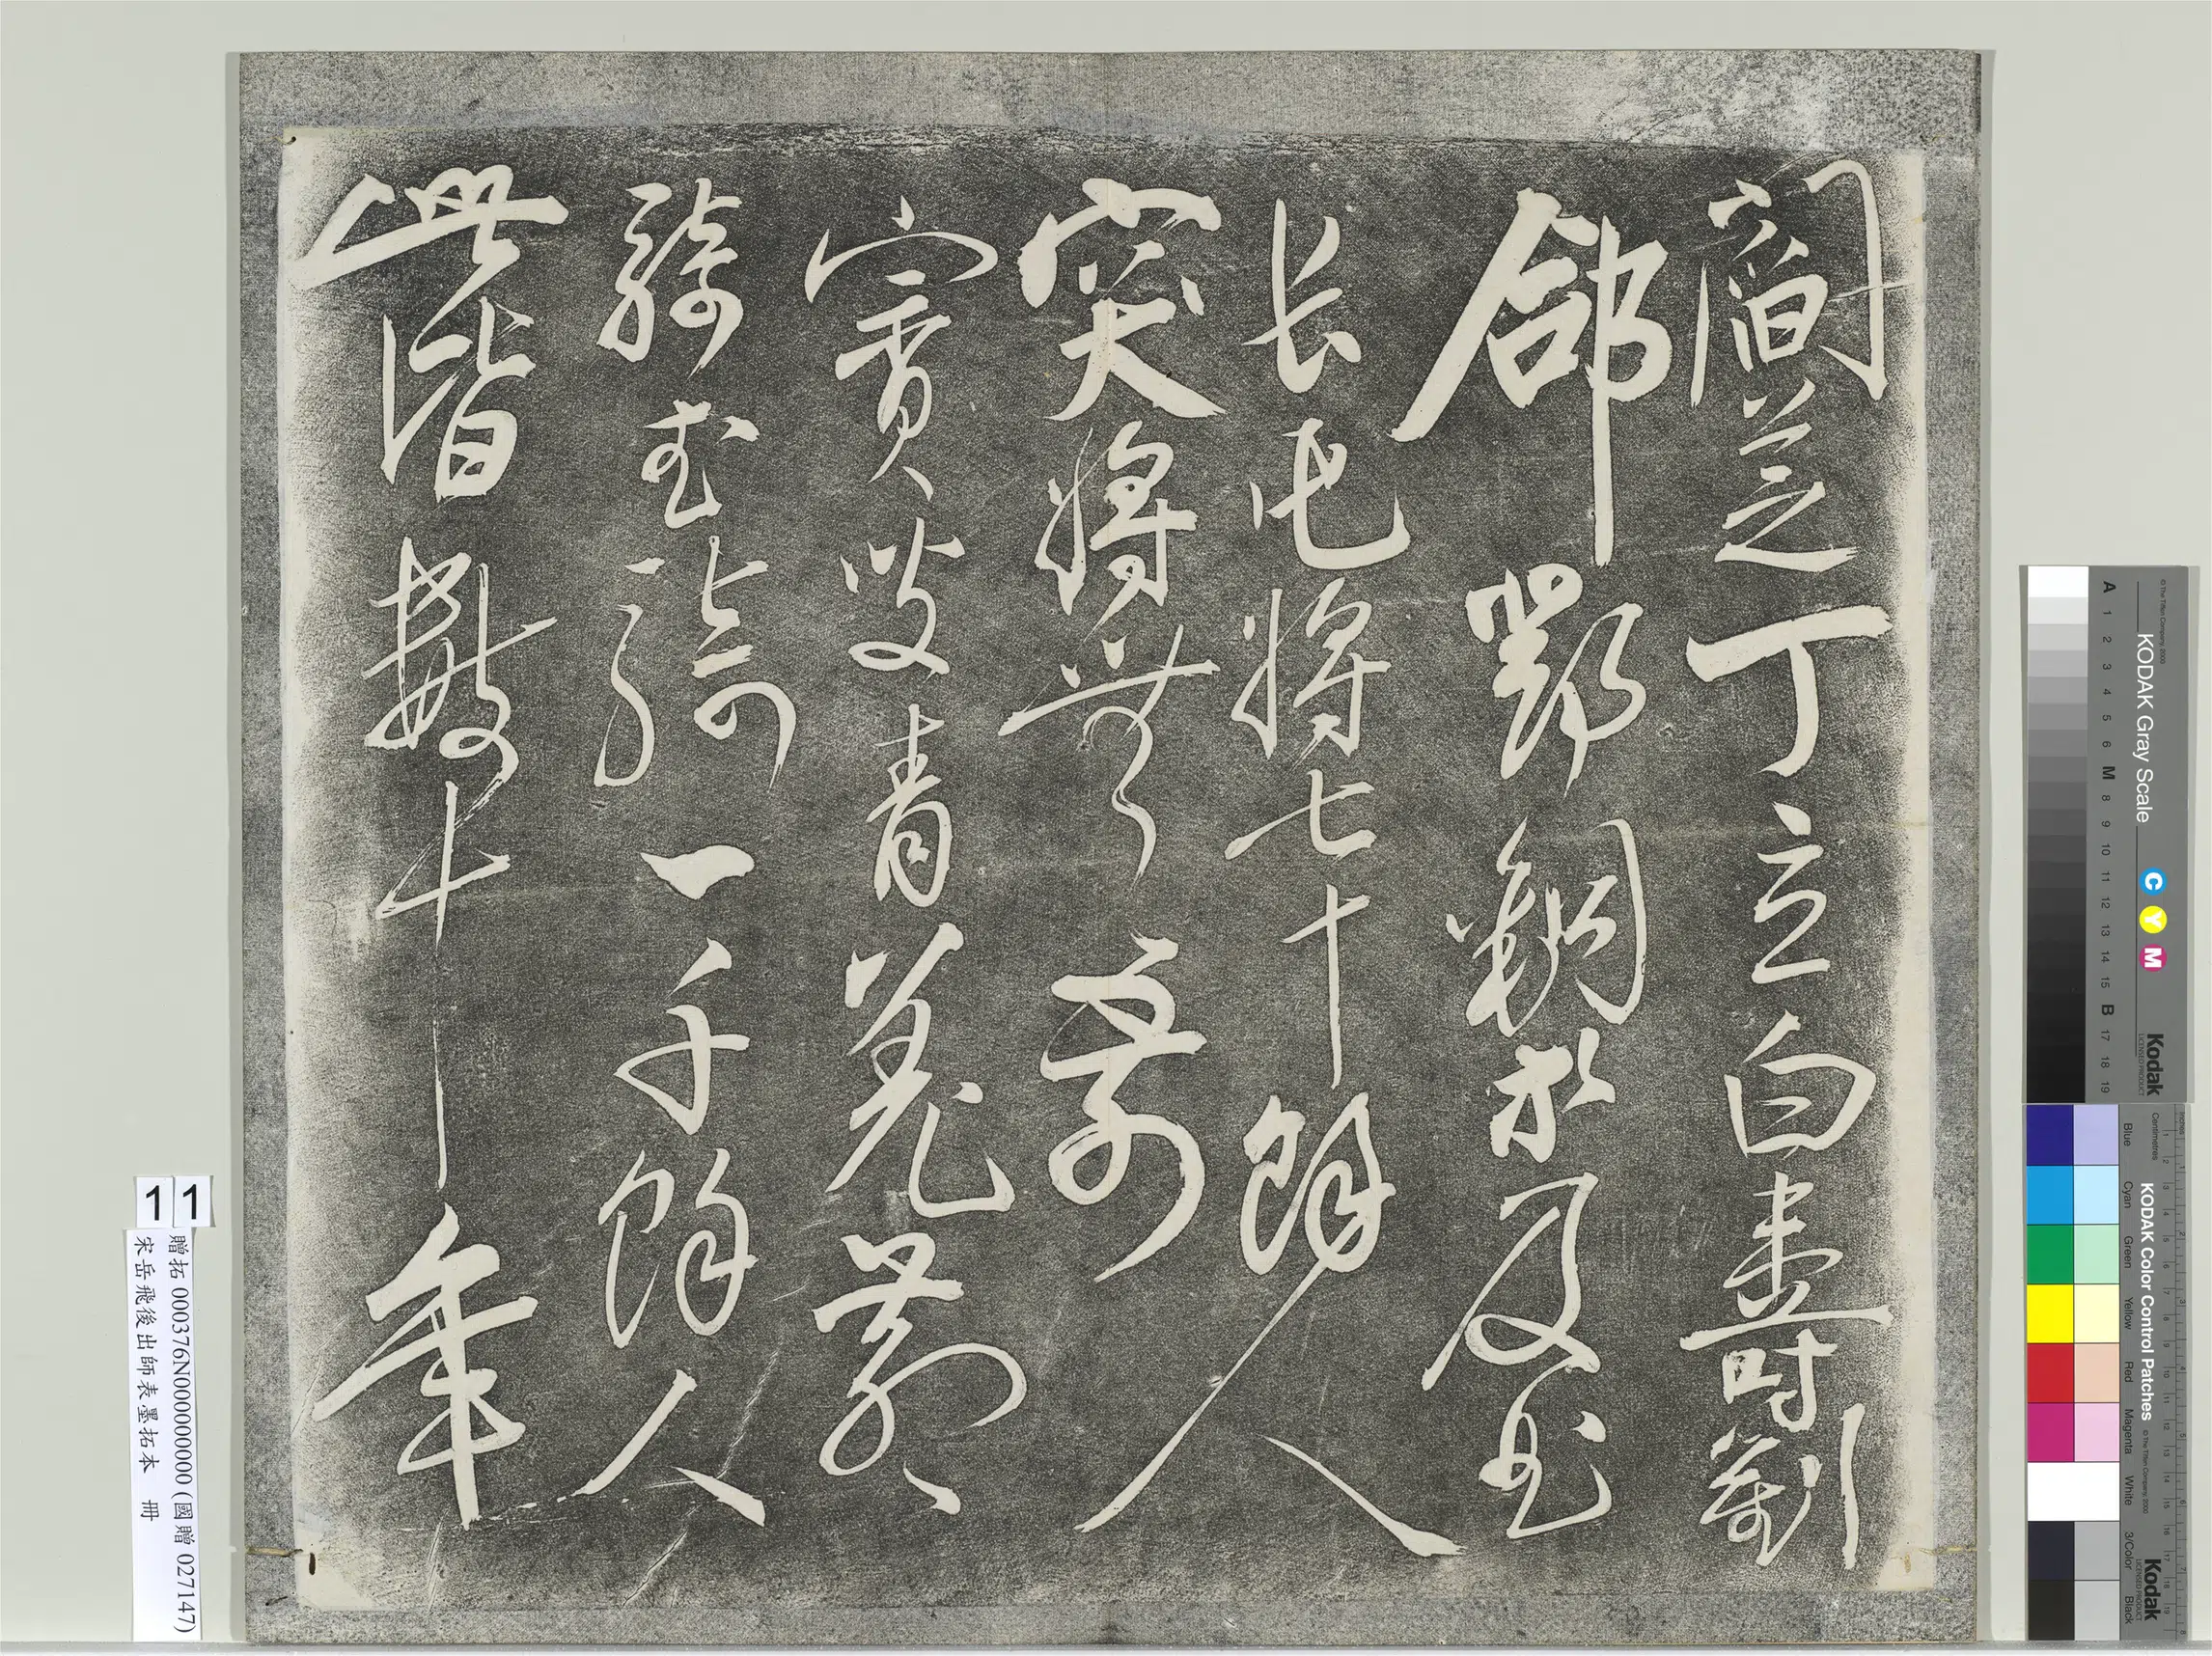 閻芝丁立白壽劉
郃鄧銅等及曲
長屯將七十餘人
突將無前
賨叟青羌散
騎武騎一千餘人
此皆數十年
1
贈拓 000376N000000000 (國贈 027147)
1
宋岳飛後出師表墨拓本 冊
KODAK Gray Scale
C Y M
Kodak
LICENSED PRODUCT
A 1 2 3 4 5 6 M 8 9 10 11 12 13 14 15 B 17 18 19
© The Tiffen Company, 2000
KODAK Color Control Patches
© The Tiffen Company, 2000
Kodak
LICENSED PRODUCT
Blue Cyan Green Yellow Red Magenta White 3/Color Black
Centimetres